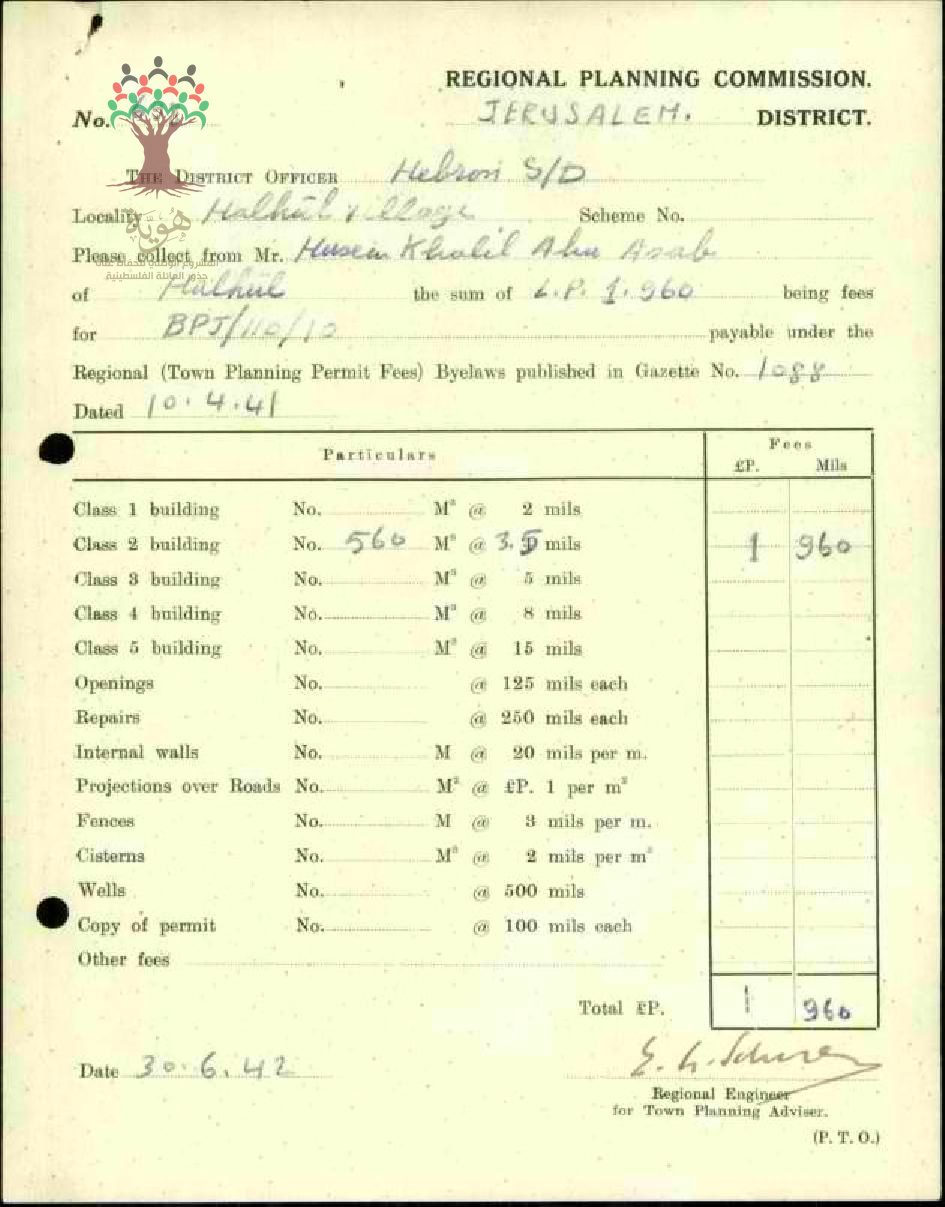 REGIONAL PLANNING COMMISSION.
No. JERUSALEM. DISTRICT.
THE DISTRICT OFFICER Hebron S/D
Locality Halhūl village Scheme No.
Please collect from Mr. Husein Khalil Abu Asab
هُوِيَّة
المشروع الوطني للحفاظ على
جذور العائلة الفلسطينية
of Halhūl the sum of L.P. 1.960 being fees
for BPJ/110/10 payable under the
Regional (Town Planning Permit Fees) Byelaws published in Gazette No. 1088
Dated 10.4.41
Particulars Fees
£P. Mils
Class 1 building No. M³ @ 2 mils
Class 2 building No. 560 M³ @ 3.5 mils 1 960
Class 3 building No. M³ @ 5 mils
Class 4 building No. M³ @ 8 mils
Class 5 building No. M³ @ 15 mils
Openings No. @ 125 mils each
Repairs No. @ 250 mils each
Internal walls No. M @ 20 mils per m.
Projections over Roads No. M² @ £P. 1 per m²
Fences No. M @ 3 mils per m.
Cisterns No. M³ @ 2 mils per m³
Wells No. @ 500 mils
Copy of permit No. @ 100 mils each
Other fees
Total £P. 1 960
Date 30.6.42
Regional Engineer
for Town Planning Adviser.
(P. T. O.)